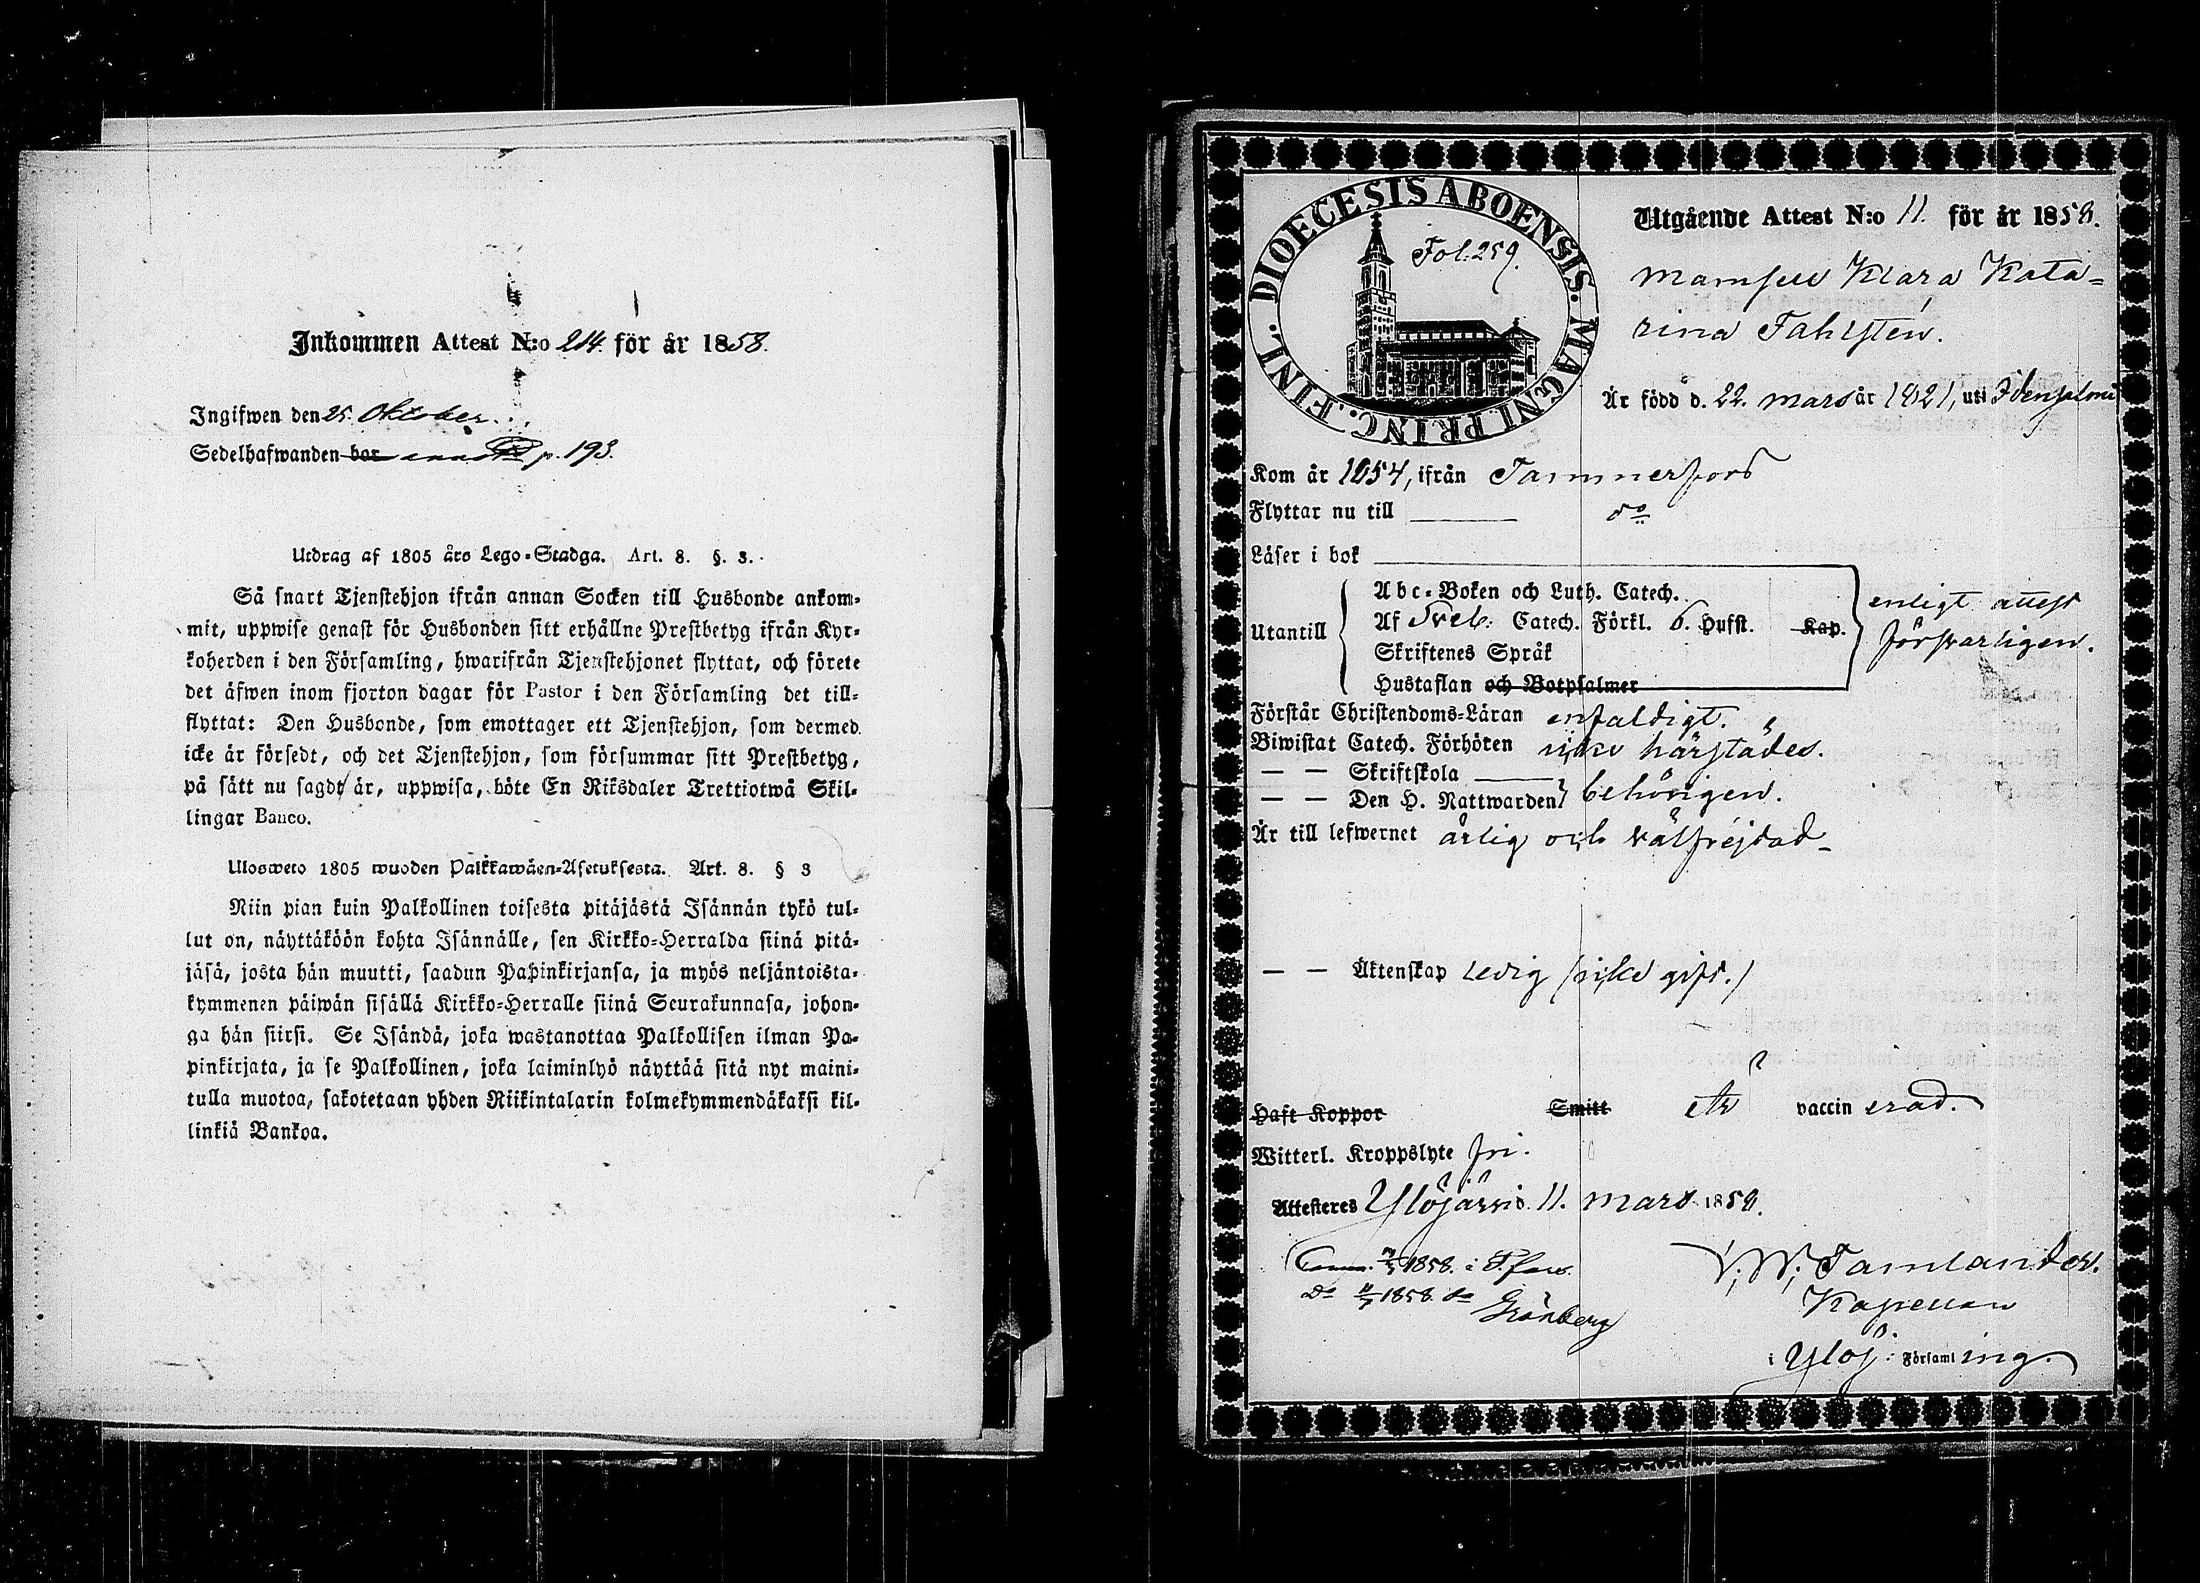 Inkommen Attest N:o 214. för år 1858.
Ingifwen den 25. Oktober.
Sedelhafwanden bor p. 193.
Utdrag af 1805 års Lego-Stadga. Art. 8. §. 3.
Så snart Tjenstehjon ifrån annan Socken till Husbonde ankom-
mit, uppwise genast för Husbonden sitt erhållne Prestbetyg ifrån Kyr-
koherden i den Församling, hwarifrån Tjenstehjonet flyttat, och förete
det äfwen inom fjorton dagar för Pastor i den Församling det till-
flyttat: Den Husbonde, som emottager ett Tjenstehjon, som dermed
icke är försedt, och det Tjenstehjon, som försummar sitt Prestbetyg,
på sätt nu sagdt är, uppwisa, böte En Riksdaler Trettiotwå Skil-
lingar Banco.
Ulosweto 1805 wuoden Palkkawäen-Asetuksesta. Art. 8. § 3
Niin pian kuin Palkollinen toisesta pitäjästä Isännän tykö tul-
lut on, näyttäköön kohta Isännälle, sen Kirkko-Herralda siinä pitä-
jäsä, josta hän muutti, saadun Papinkirjansa, ja myös neljäntoista-
kymmenen päiwän sisällä Kirkko-Herralle siinä Seurakunnasa, johon-
ga hän siirsi. Se Isändä, joka wastanottaa Palkollisen ilman Pa-
pinkirjata, ja se Palkollinen, joka laiminlyö näyttää sitä nyt maini-
tulla muotoa, sakotetaan yhden Riikintalarin kolmekymmendäkaksi kil-
linkiä Bankoa.
DIOECESIS ABOENSIS. MAGNI PRINC. FINL.
Fol. 259.
Utgående Attest N:o 11. för år 1858.
Mamsell Klara Kata-
rina Fahlstén.
Är född d. 22. mars år 1821, uti Idensalmi
Kom år 1854, ifrån Tammerfors
Flyttar nu till do
Läser i bok
Utantill
Abc-Boken och Luth. Catech.
Af Sveb. Catech. Förkl. 6. Hufst. Kap.
Skriftenes Språk
Hustaflan och Botpsalmer
enligt attest
försvarligen.
Förstår Christendoms-Läran enfaldigt.
Biwistat Catech. Förhören icke härstädes.
— — Skriftskola
— — Den H. Nattwarden behörigen.
Är till lefwernet ärlig och välfrejdad
— — Äktenskap ledig (icke gift.)
Haft Koppor Smitt Är vaccin erad.
Witterl. Kroppslyte fri.
Attesteres Ylöjärvi d. 11. mars 1858.
Comm. 1858. i T.fors.
Do 1858. do
Grönberg
V. W. Tamlander.
Kapellan
i Ylöj: Församl ing.